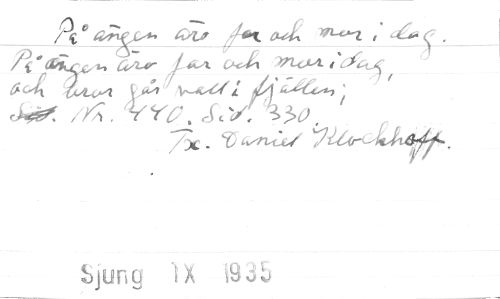 På ängen äro far och mor i dag.
På ängen äro far och mor i dag,
och bror går vall i fjällen;
Sid. Nr. 440. Sid. 330.
Tx. Daniel Klockhoff.
Sjung IX 1935